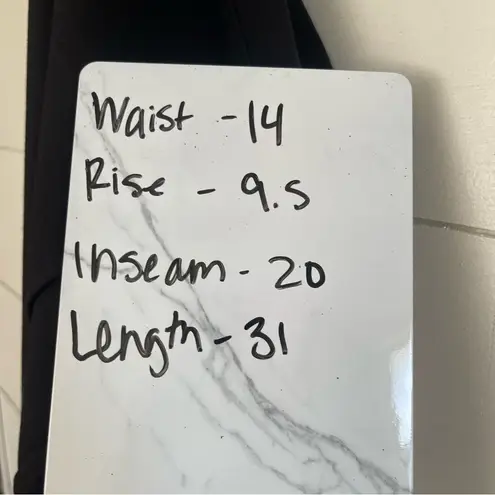 Waist - 14
Rise - 9.5
Inseam - 20
Length - 31